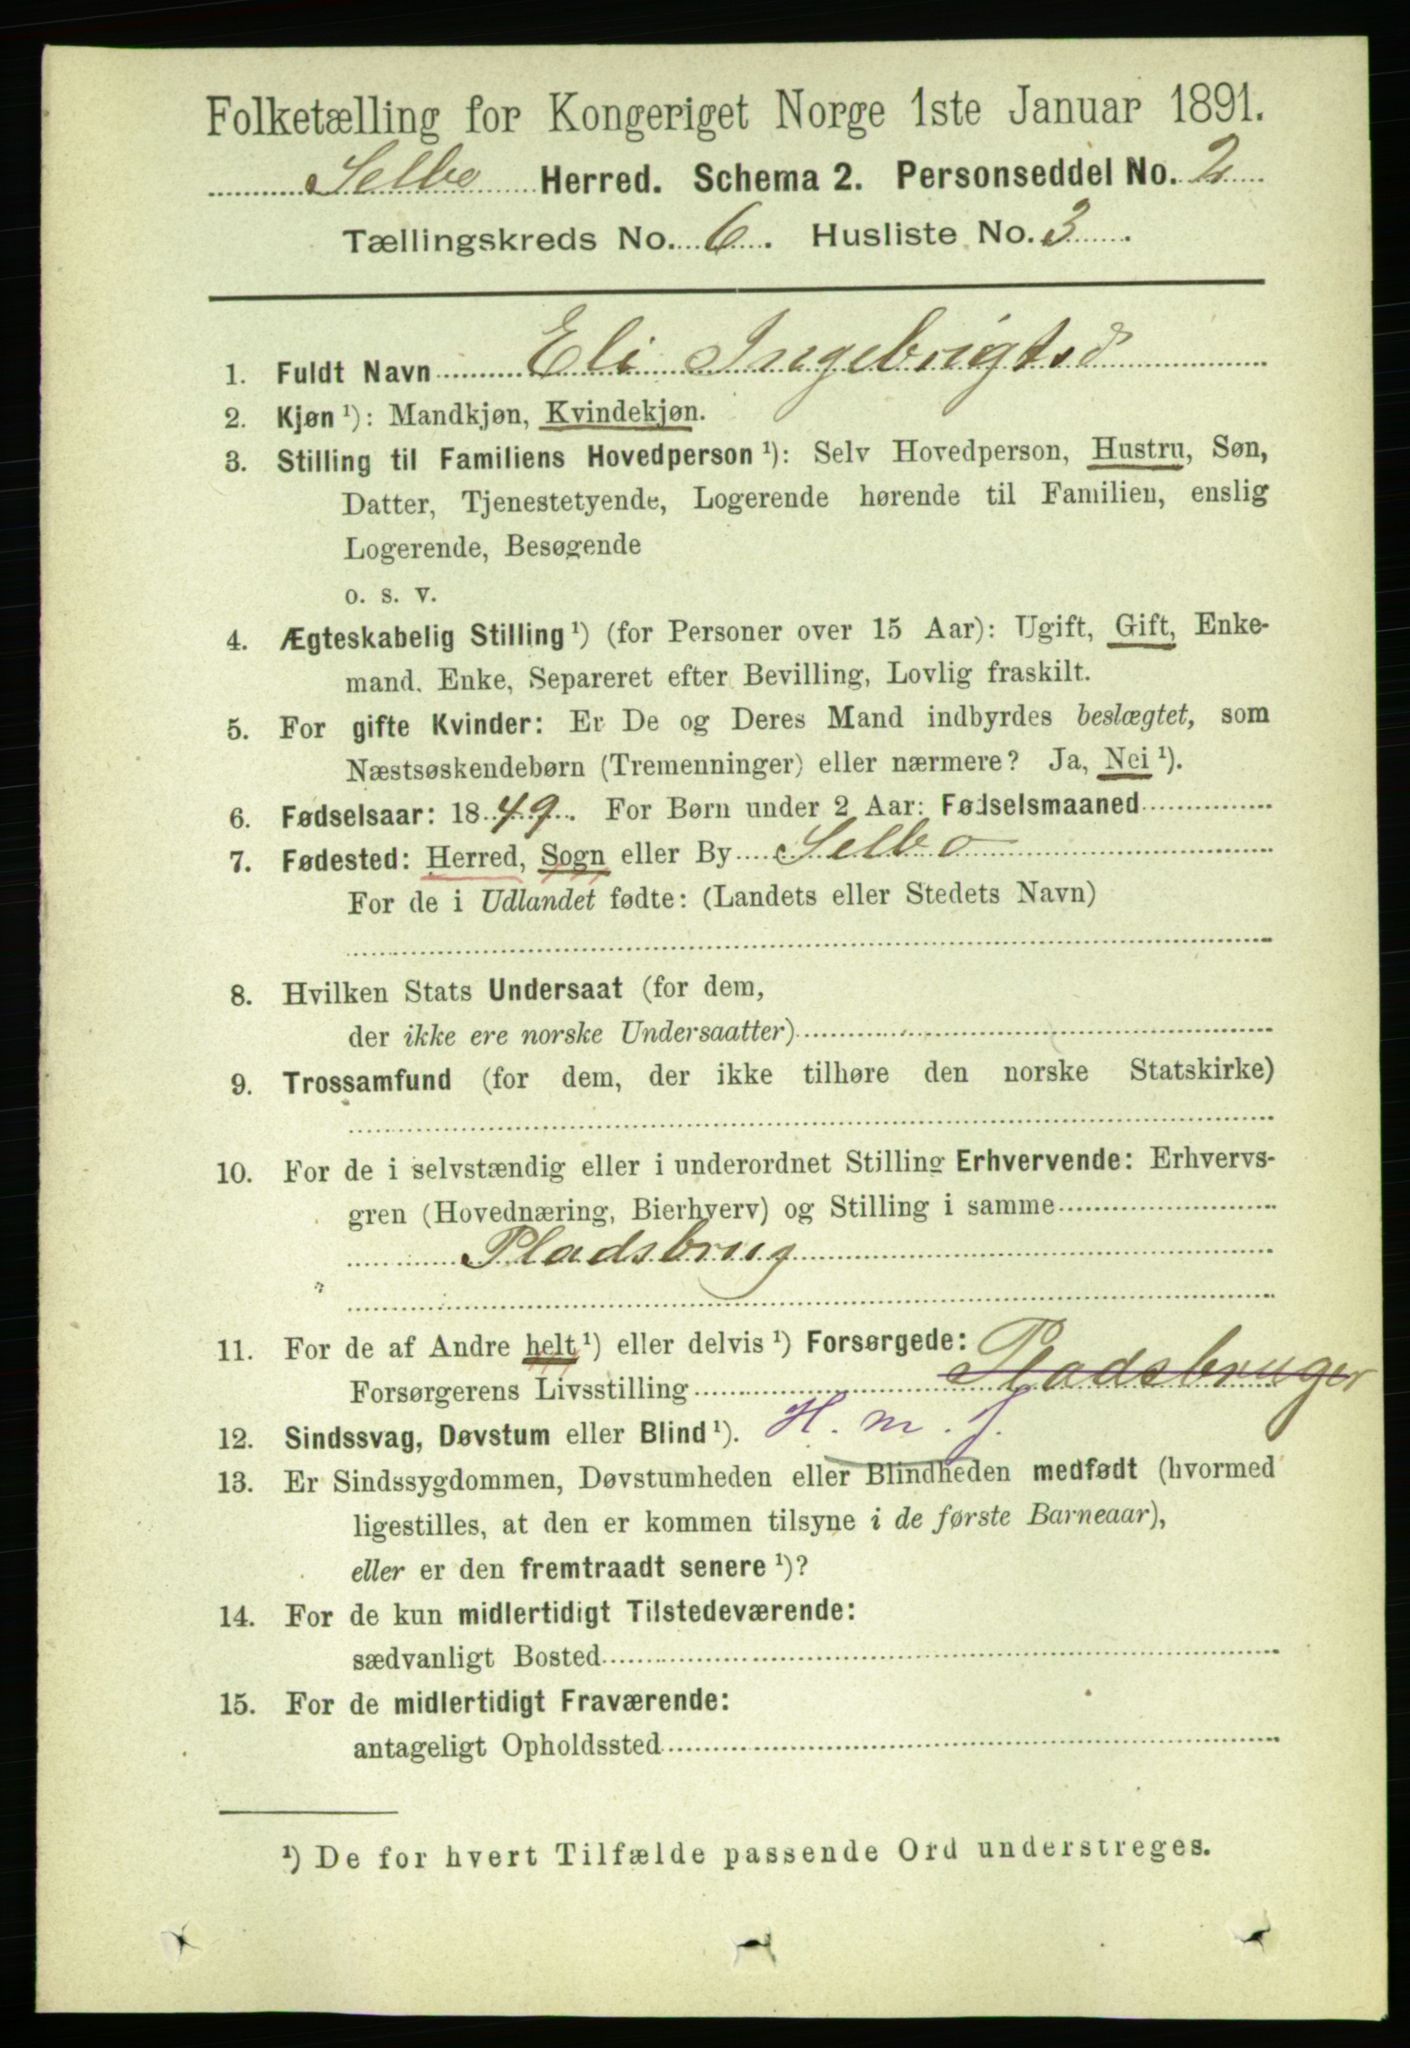 Folketælling for Kongeriget Norge 1ste Januar 1891.
Selbo Herred. Schema 2. Personseddel No. 2
Tællingskreds No. 6. Husliste No. 3
1. Fuldt Navn Eli Ingebrigtsd
2. Kjøn ¹): Mandkjøn, Kvindekjøn.
3. Stilling til Familiens Hovedperson ¹): Selv Hovedperson, Hustru, Søn,
Datter, Tjenestetyende, Logerende hørende til Familien, enslig
Logerende, Besøgende
o. s. v.
4. Ægteskabelig Stilling ¹) (for Personer over 15 Aar): Ugift, Gift, Enke-
mand, Enke, Separeret efter Bevilling, Lovlig fraskilt.
5. For gifte Kvinder: Er De og Deres Mand indbyrdes beslægtet, som
Næstsøskendebørn (Tremenninger) eller nærmere? Ja, Nei ¹).
6. Fødselsaar: 1849. For Børn under 2 Aar: Fødselsmaaned
7. Fødested: Herred, Sogn eller By Selbo
For de i Udlandet fødte: (Landets eller Stedets Navn)
8. Hvilken Stats Undersaat (for dem,
der ikke ere norske Undersaatter)
9. Trossamfund (for dem, der ikke tilhøre den norske Statskirke)
10. For de i selvstændig eller i underordnet Stilling Erhvervende: Erhvervs-
gren (Hovednæring, Bierhverv) og Stilling i samme
Pladsbrug
11. For de af Andre helt ¹) eller delvis ¹) Forsørgede:
Forsørgerens Livsstilling Pladsbruger
H. m. J.
12. Sindssvag, Døvstum eller Blind ¹).
13. Er Sindssygdommen, Døvstumheden eller Blindheden medfødt (hvormed
ligestilles, at den er kommen tilsyne i de første Barneaar),
eller er den fremtraadt senere ¹)?
14. For de kun midlertidigt Tilstedeværende:
sædvanligt Bosted
15. For de midlertidigt Fraværende:
antageligt Opholdssted
¹) De for hvert Tilfælde passende Ord understreges.